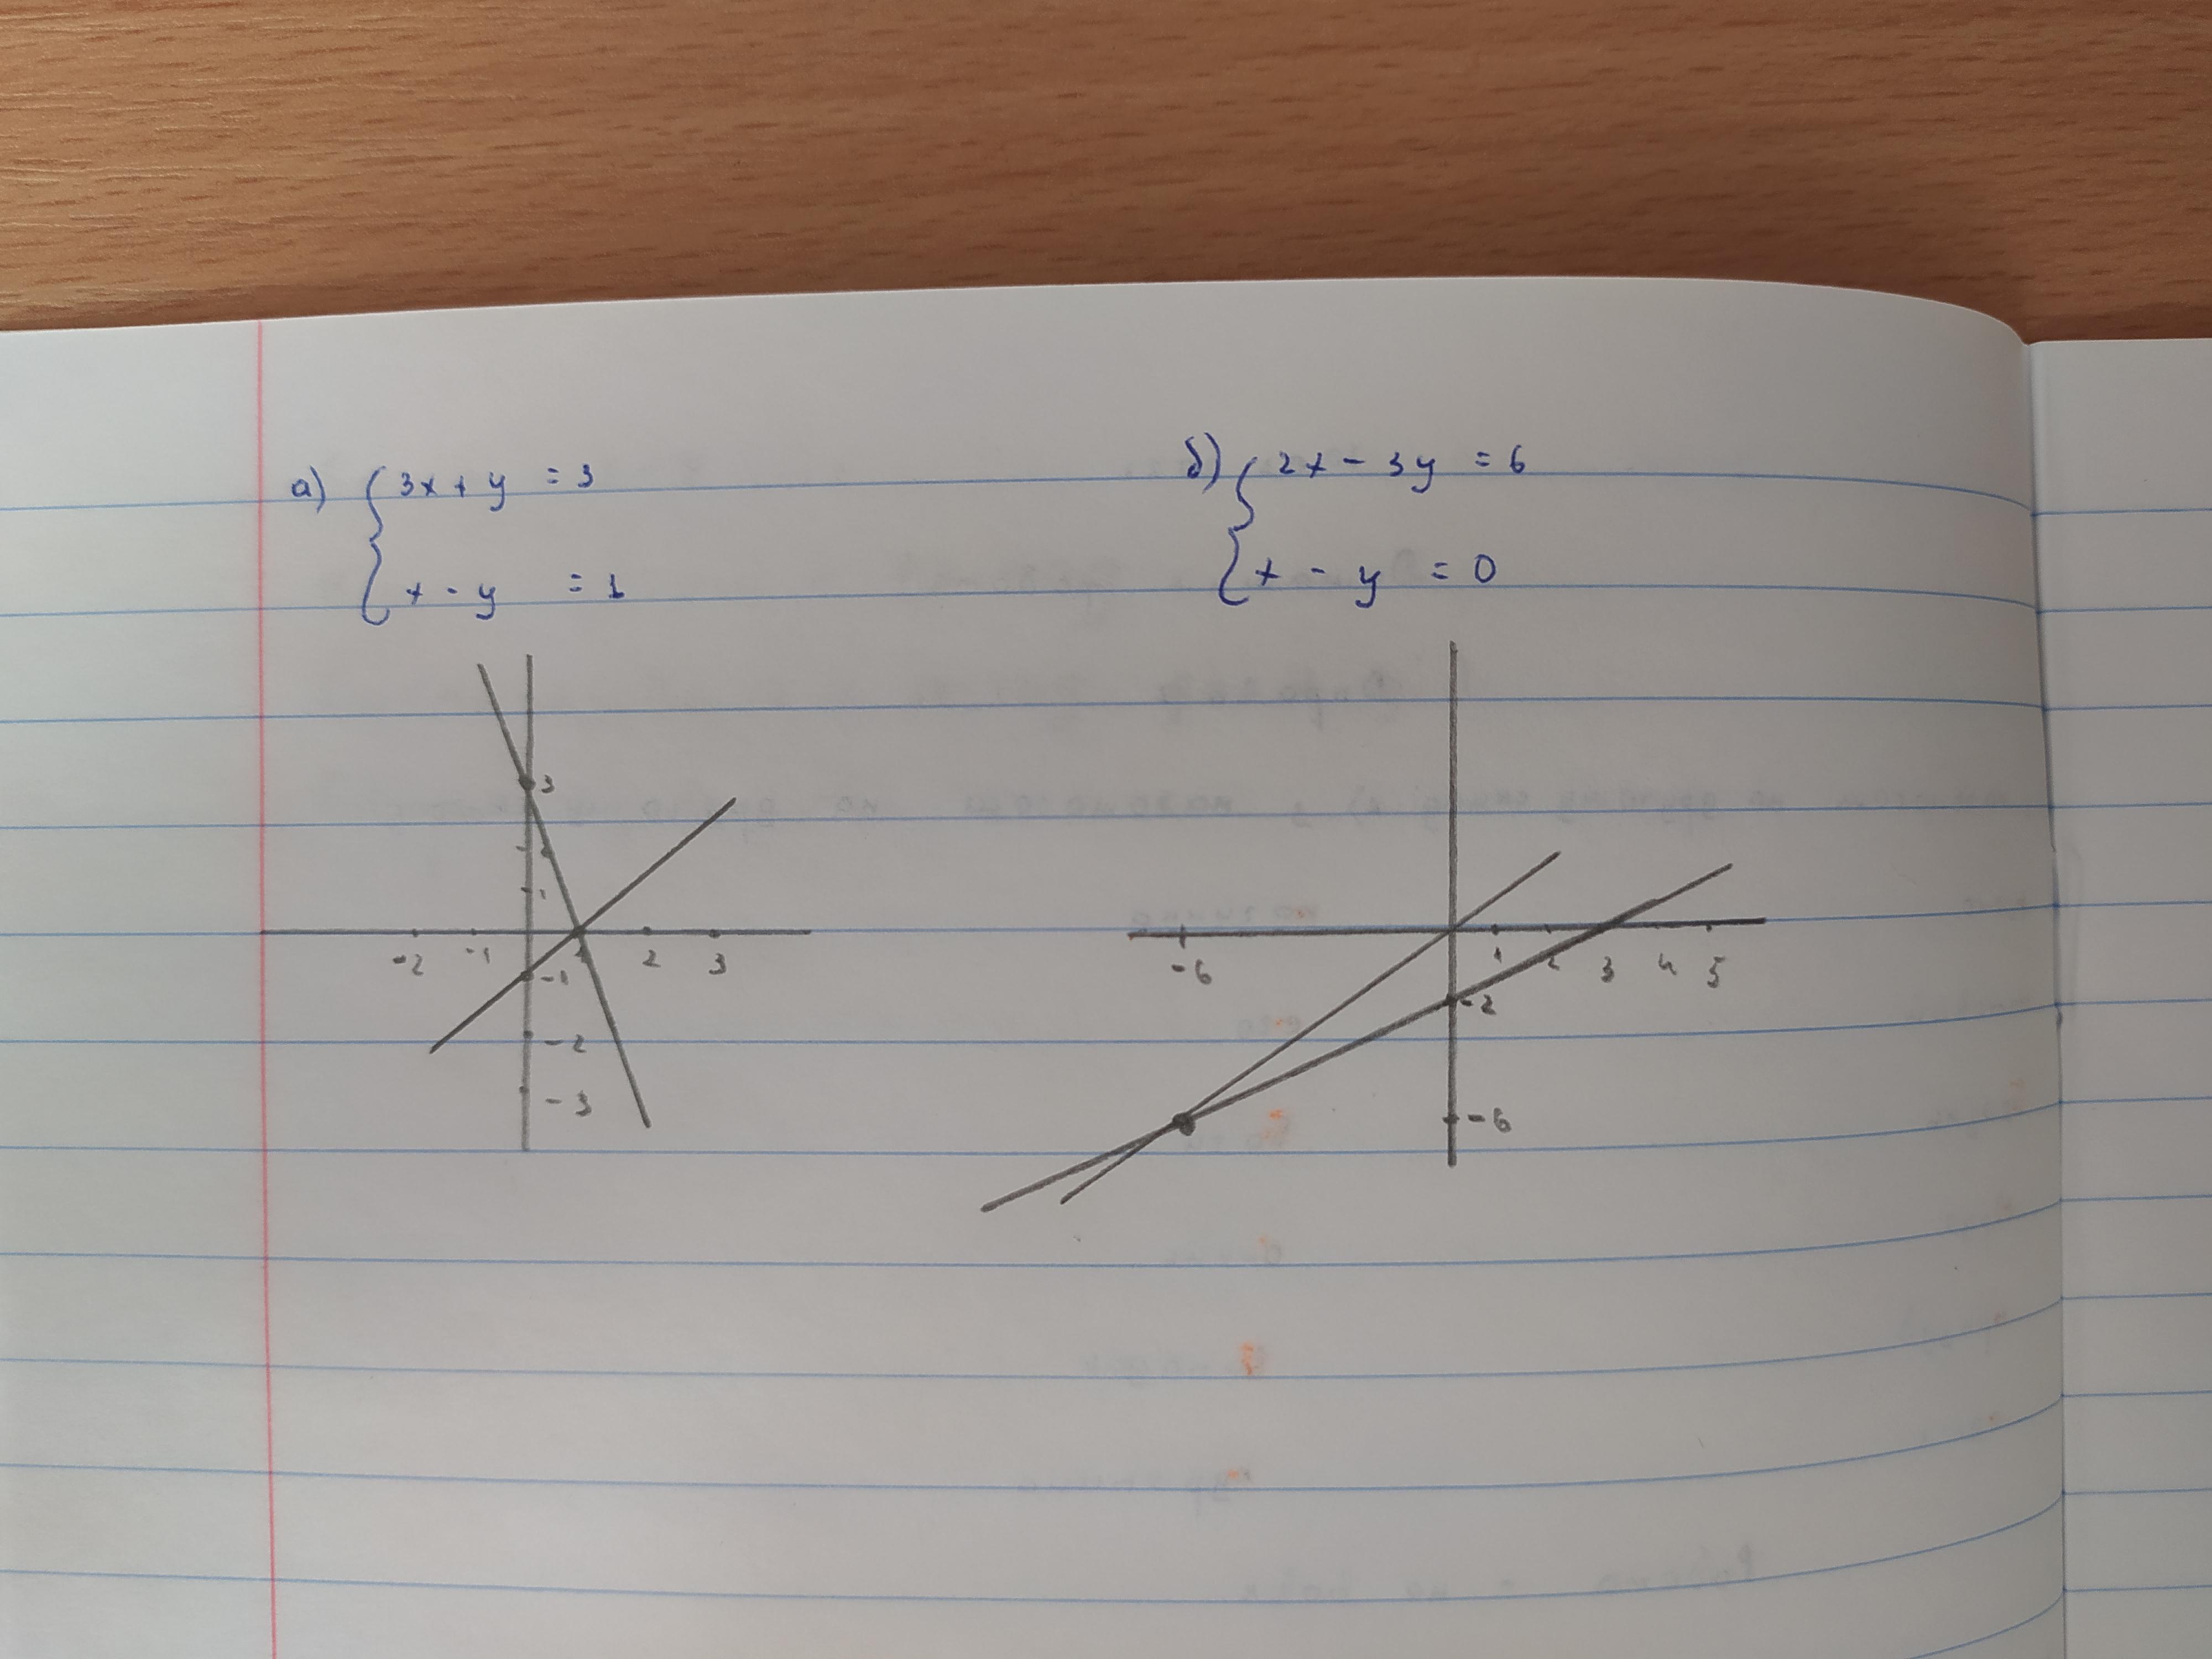 а) { 3x + y = 3
x - y = 1
б) { 2x - 3y = 6
x - y = 0
3
1
-2 -1 2 3
-1
-2
-3
-6 1 2 3 4 5
-2
-6